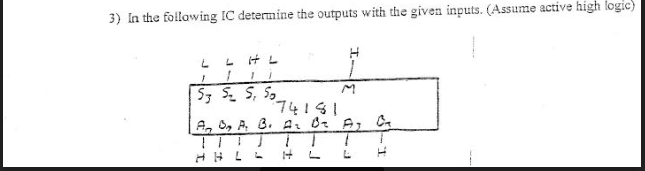 3) In the following IC determine the outputs with the given inputs. (Assume active high logic)
L L H L H
S3 S2 S1 S0 M
74181
A0 B0 A1 B1 A2 B2 A3 Cn
H H L L H L L H